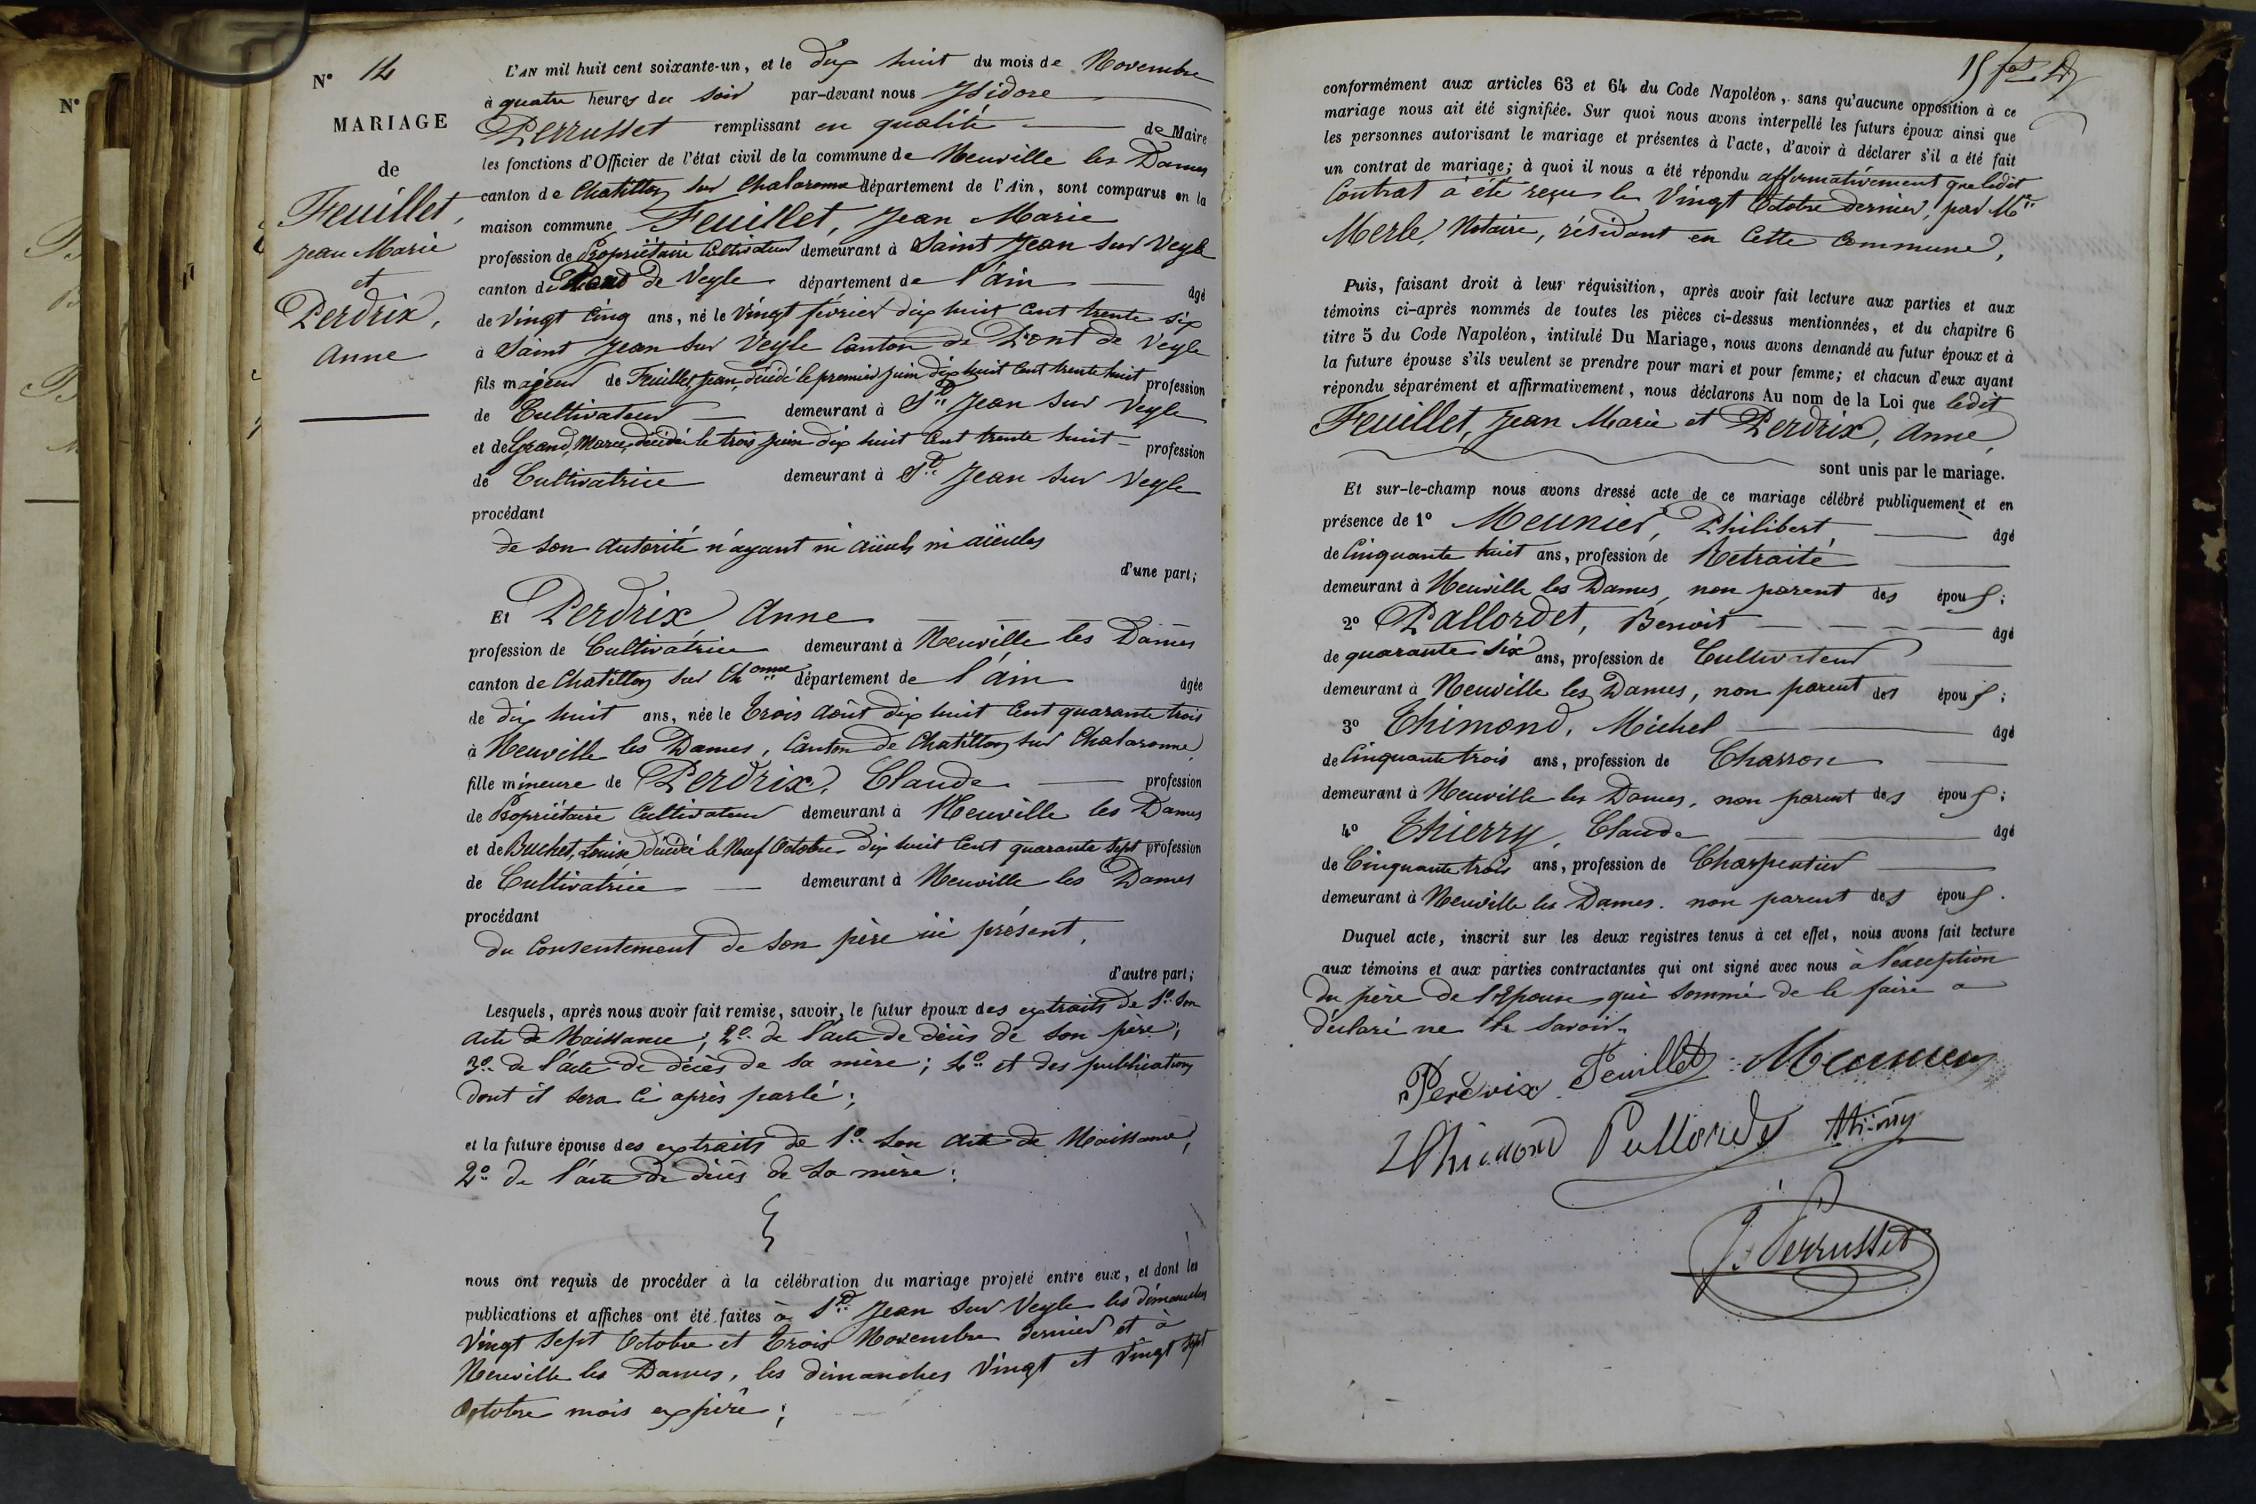 N° 14
MARIAGE
de
Feuillet,
Jean Marie
et
Perdrix,
Anne
L'AN mil huit cent soixante-un, et le dix huit du mois de Novembre
à quatre heures du soir par-devant nous Isidore
Perrusset remplissant en qualité de Maire
les fonctions d'Officier de l'état civil de la commune de Neuville les Dames
canton de Chatillon sur Chalaronne département de l'Ain, sont comparus en la
maison commune Feuillet, Jean Marie
profession de Propriétaire Cultivateur demeurant à Saint Jean sur Veyle
canton de Pont de Veyle département de l'ain âgé
de vingt cinq ans, né le vingt février dix huit cent trente six
à Saint Jean sur Veyle Canton de Pont de Veyle
fils majeur de Feuillet Jean, décédé le premier juin dix huit cent trente huit profession
de Cultivateur demeurant à St Jean sur Veyle
et de Grand, Marie, décédée le trois juin dix huit cent trente huit profession
de Cultivatrice demeurant à St Jean sur Veyle
procédant
de son autorité n'ayant ni aïeuls ni aïeules
d'une part;
Et Perdrix Anne
profession de Cultivatrice demeurant à Neuville les Dames
canton de Chatillon sur Chonne département de l'ain âgée
de dix huit ans, née le trois août dix huit cent quarante trois
à Neuville les Dames, Canton de Chatillon sur Chalaronne
fille mineure de Perdrix, Claude profession
de Propriétaire Cultivateur demeurant à Neuville les Dames
et de Buchet, Louise décédée le neuf Octobre dix huit cent quarante sept profession
de Cultivatrice demeurant à Neuville les Dames
procédant
du consentement de son père ici présent,
d'autre part;
Lesquels, après nous avoir fait remise, savoir, le futur époux des extraits de 1° son
acte de Naissance; 2° de l'acte de décès de son père;
3° de l'acte de décès de sa mère; 4° et des publications
dont il sera ci après parlé;
et la future épouse des extraits de 1° son acte de Naissance,
2° de l'acte de décès de sa mère;
nous ont requis de procéder à la célébration du mariage projeté entre eux, et dont les
publications et affiches ont été faites à St Jean sur Veyle les dimanches
vingt sept Octobre et trois Novembre dernier et à
Neuville les Dames, les dimanches vingt et vingt sept
Octobre mois expiré;
conformément aux articles 63 et 64 du Code Napoléon, sans qu'aucune opposition à ce
mariage nous ait été signifiée. Sur quoi nous avons interpellé les futurs époux ainsi que
les personnes autorisant le mariage et présentes à l'acte, d'avoir à déclarer s'il a été fait
un contrat de mariage; à quoi il nous a été répondu affirmativement que ledit
Contrat a été reçu le vingt Octobre dernier, par Me
Merle, Notaire, résidant en cette Commune,
Puis, faisant droit à leur réquisition, après avoir fait lecture aux parties et aux
témoins ci-après nommés de toutes les pièces ci-dessus mentionnées, et du chapitre 6
titre 5 du Code Napoléon, intitulé Du Mariage, nous avons demandé au futur époux et à
la future épouse s'ils veulent se prendre pour mari et pour femme; et chacun d'eux ayant
répondu séparément et affirmativement, nous déclarons Au nom de la Loi que ledit
Feuillet, Jean Marie et Perdrix, Anne,
sont unis par le mariage.
Et sur-le-champ nous avons dressé acte de ce mariage célébré publiquement et en
présence de 1° Meunier, Philibert âgé
de cinquante huit ans, profession de Retraité
demeurant à Neuville les Dames, non parent des époux;
2° Pallordet, Benoit âgé
de quarante six ans, profession de Cultivateur
demeurant à Neuville les Dames, non parent des époux;
3° Thimond, Michel âgé
de cinquante trois ans, profession de Charron
demeurant à Neuville les Dames, non parent des époux;
4° Thierry, Claude âgé
de Cinquante trois ans, profession de Charpentier
demeurant à Neuville les Dames. non parent des époux.
Duquel acte, inscrit sur les deux registres tenus à cet effet, nous avons fait lecture
aux témoins et aux parties contractantes qui ont signé avec nous à l'exception
du père de l'Epouse qui sommé de le faire a
déclaré ne le savoir.
Perdrix Feuillet Meunier
Thimond Pallordet Thierry
J. Perrusset